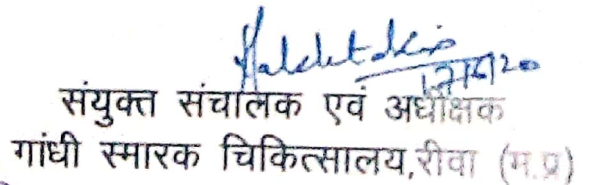 17/6/20
संयुक्त संचालक एवं अधीक्षक
गांधी स्मारक चिकित्सालय,रीवा (म.प्र)